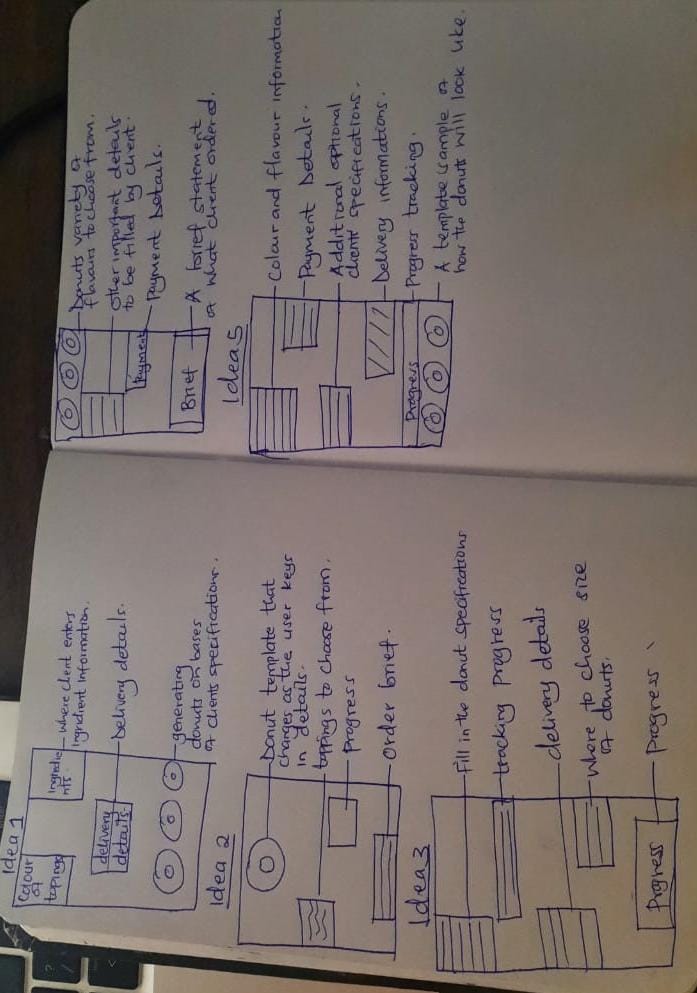 Idea 1
Colour
of
topings
Ingredie
nts.
Where client enters
Ingridient Information.
delivery
details
Delivery details.
generating
donuts on bases
of clients specifications.
Idea 2
Donut template that
changes as the user keys
in details.
toppings to choose from.
progress
order brief.
Idea 3
Fill in the donut specifications
tracking progress
delivery details
Where to choose size
of donuts.
Progress
Progress
Donuts variety of
flavours to choose from.
Other important details
to be filled by client.
Payment
Payment Details.
Brief
A brief statement
of what client ordered.
Idea 5
Colour and flavour information
Payment Details.
Additional optional
client specifications.
Delivery informations.
Progress
Progress tracking.
A template/sample of
how the donuts will look like.